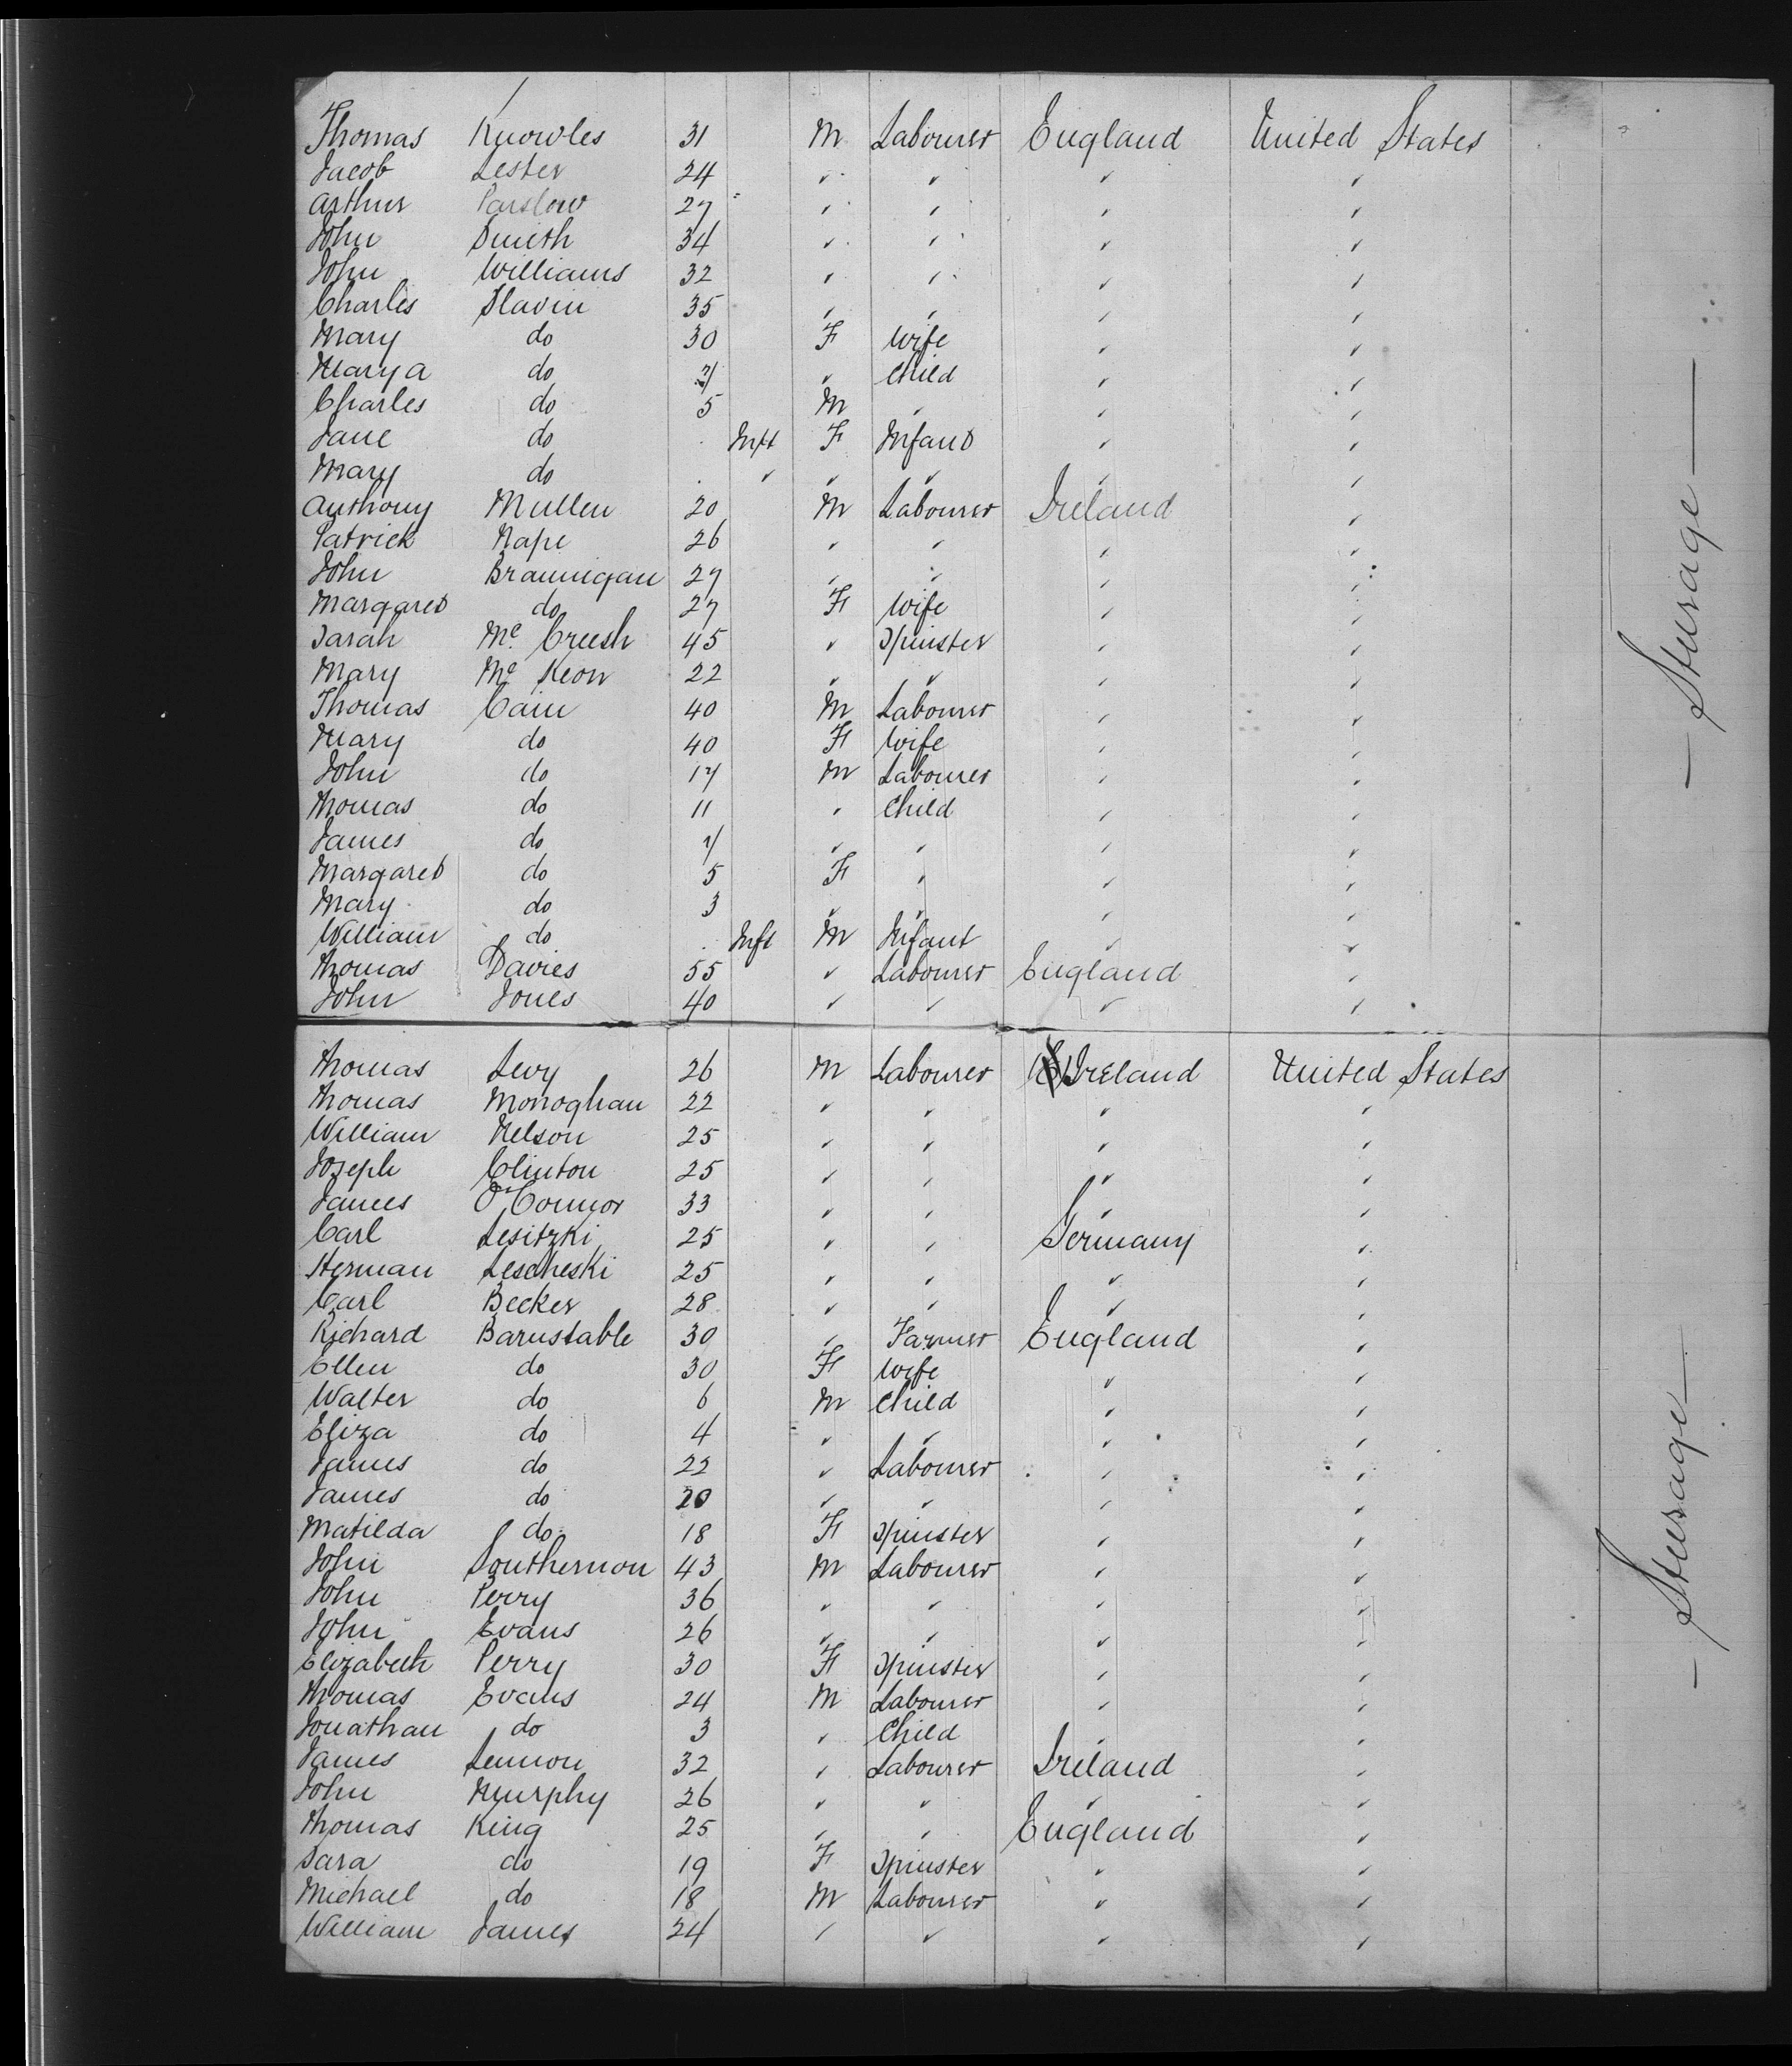 Thomas Knowles 31 M Labourer England United States
Jacob Lester 24 " " " "
Arthur Parslow 27 " " " "
John Smith 34 " " " "
John Williams 32 " " " "
Charles Slavin 35 " " " "
Mary do 30 F Wife " "
Mary A do 7 " Child " "
Charles do 5 M " " "
Jane do Inft F Infant " "
Mary do " " " " "
Anthony Mullen 20 M Labourer Ireland "
Patrick Nape 26 " " " "
John Brannigan 27 " " " "
Margaret do 27 F Wife " "
Sarah Mc Creesh 45 " Spinster " "
Mary Mc Keon 22 " " " "
Thomas Cain 40 M Labourer " "
Mary do 40 F Wife " "
John do 17 M Labourer " "
Thomas do 11 " Child " "
James do 7 " " " "
Margaret do 5 F " " "
Mary do 3 " " " "
William do Inft M Infant " "
Thomas Davies 55 " Labourer England "
John Jones 40 " " " "
— Steerage —
Thomas Levy 26 M Labourer Ireland United States
Thomas Monoghan 22 " " " "
William Nelson 25 " " " "
Joseph Clinton 25 " " " "
James O'Connor 33 " " " "
Carl Lesitzki 25 " " Germany "
Herman Lescheski 25 " " " "
Carl Becker 28 " " " "
Richard Barnstable 30 " Farmer England "
Ellen do 30 F Wife " "
Walter do 6 M Child " "
Eliza do 4 " " " "
James do 22 " Labourer " "
James do 20 " " " "
Matilda do 18 F Spinster " "
John Southernon 43 M Labourer " "
John Perry 36 " " " "
John Evans 26 " " " "
Elizabeth Perry 30 F Spinster " "
Thomas Evans 24 M Labourer " "
Jonathan do 3 " Child " "
James Lennon 32 " Labourer Ireland "
John Murphy 26 " " " "
Thomas King 25 " " England "
Sara do 19 F Spinster " "
Michael do 18 M Labourer " "
William James 24 " " " "
— Steerage —